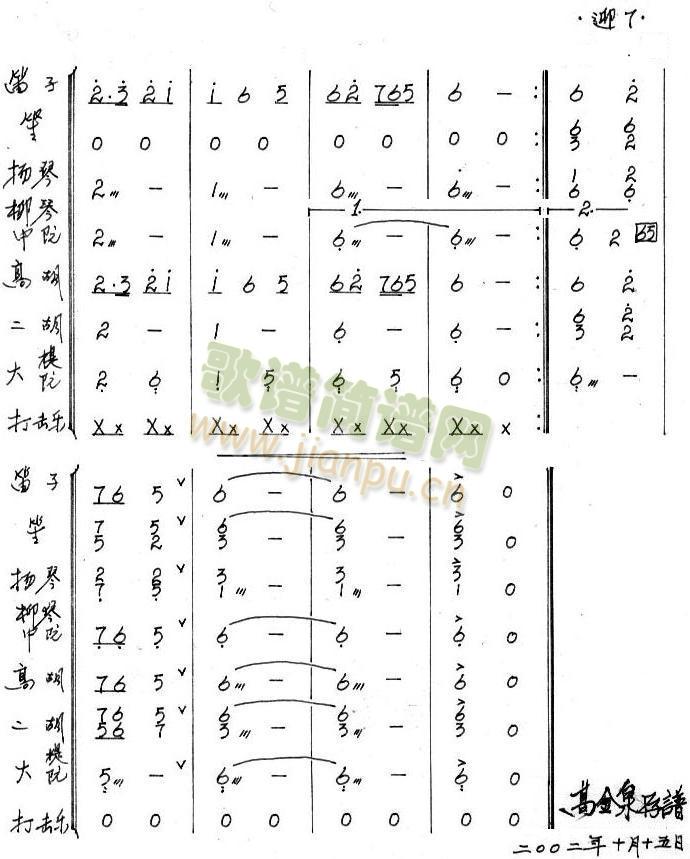 ·迎7·
笛子 2·3 2 1 | 1 6 5 | 6 2 7 6 5 | 6 — : 6 2
笙 0 0 | 0 0 | 0 0 | 0 0 : 6 6
3 2
扬琴 2/// — | 1/// — | 6/// — | 6/// — : 1 2
6 6
1. 2.
柳琴
中阮 2/// — | 1/// — | 6/// — | 6/// — : 6 2 65
高胡 2·3 2 1 | 1 6 5 | 6 2 7 6 5 | 6 — : 6 2
二胡 2 — | 1 — | 6 — | 6 — : 6 2
3 2
大提
阮 2 6 | 1 5 | 6 5 | 6 0 : 6/// —
打击乐 X x X x | X x X x | X x X x | X x x :
歌谱简谱网
www.jianpu.cn
笛子 7 6 5 ∨ | 6 — | 6 — | 6 0
笙 7 5 ∨ | 6 — | 6 — | 6 0
5 2 3 3 3
扬琴 2 2 ∨ | 3 — | 3 — | 3 0
7 5 1/// 1/// 1
柳琴
中阮 7 6 5 ∨ | 6 — | 6 — | 6 0
高胡 7 6 5 ∨ | 6/// — | 6/// — | 6 0
二胡 7 6 5 ∨ | 6 — | 6 — | 6 0
5 6 7 3/// 3/// 3
大提
阮 5/// — ∨ | 6/// — | 6/// — | 6 0
打击乐 0 0 | 0 0 | 0 0 | 0 0
高金泉存譜
二〇〇二年十月十五日